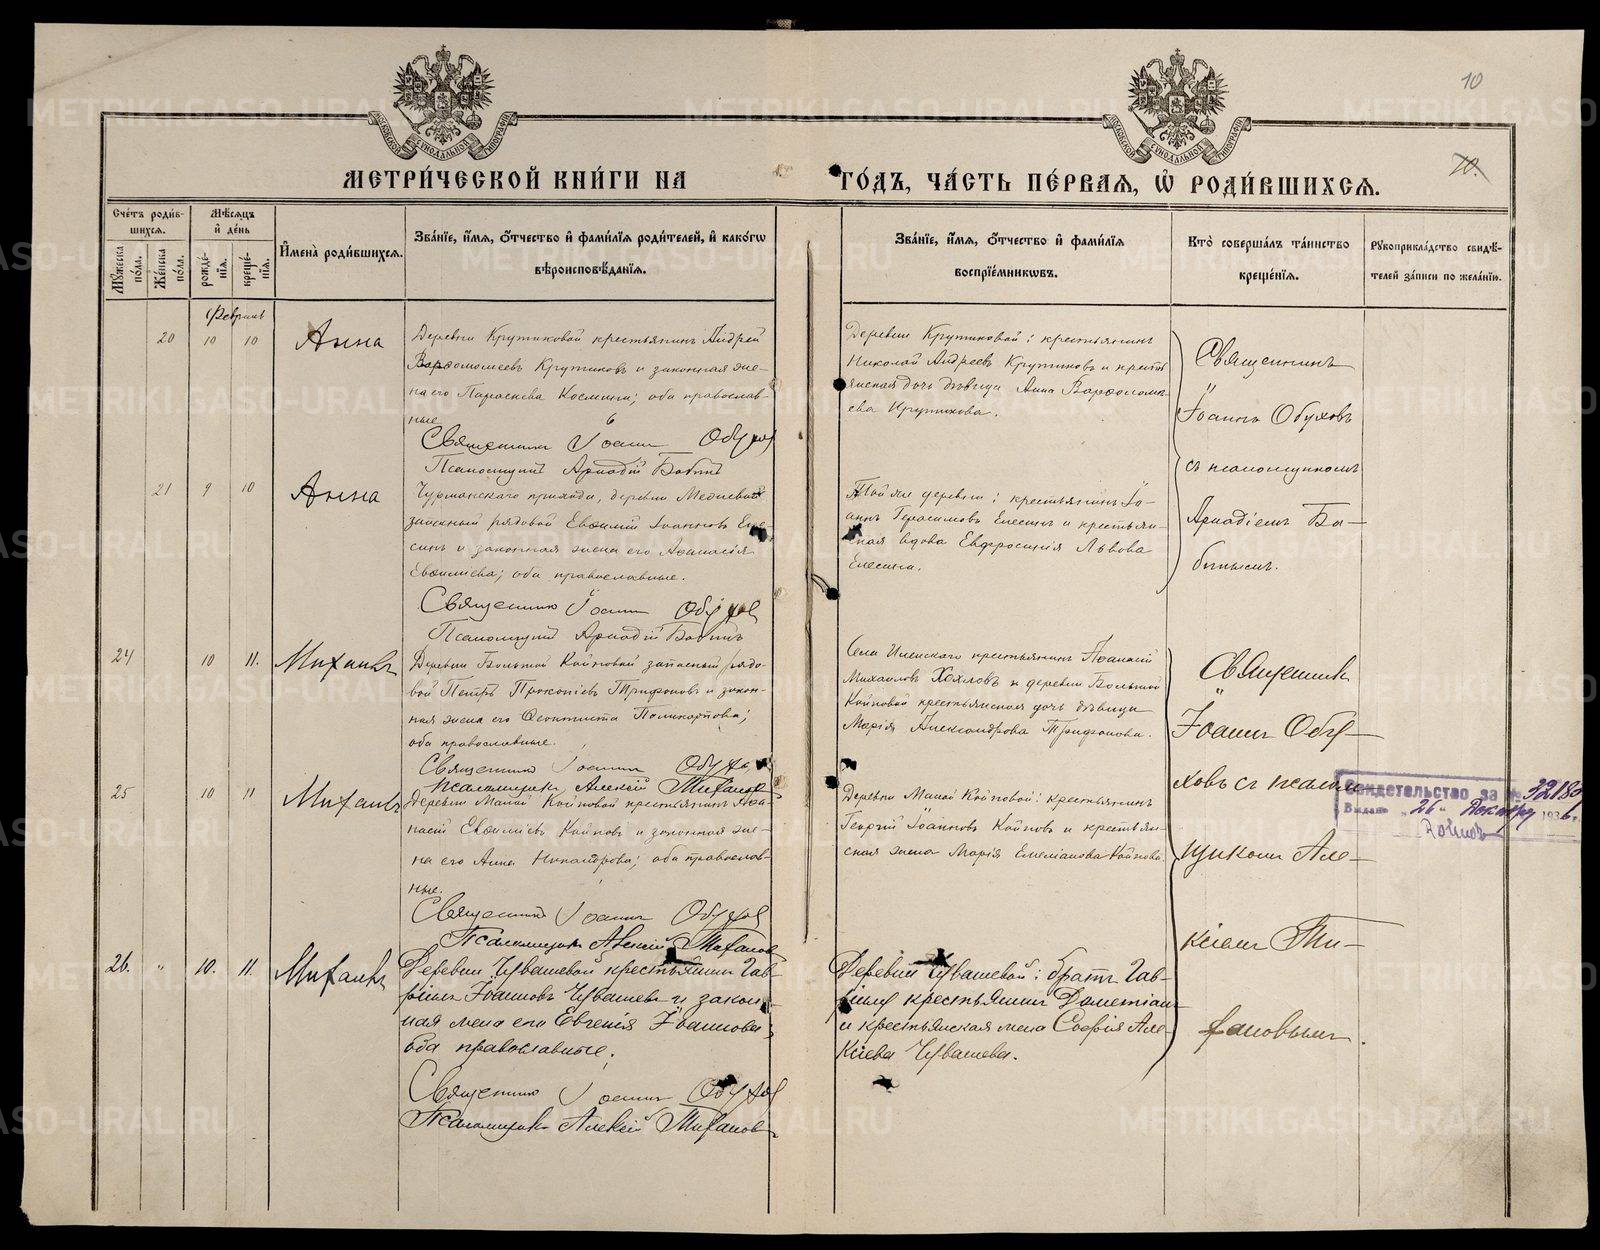 10
70.
МОСКОВСКОЙ СѴНОДАЛЬНОЙ ТИПОГРАФІИ
МОСКОВСКОЙ СѴНОДАЛЬНОЙ ТИПОГРАФІИ
МЕТРИ́ЧЕСКОЙ КНИ́ГИ НА
ГО́ДЪ, ЧА́СТЬ ПЕ́РВАЯ, Ѡ҆ РОДИ́ВШИХСЯ.
Сче́тъ роди́в-
шихся.
Мꙋжеска по́ла.
Же́нска по́ла.
Мѣ́сяцъ
и҆ де́нь
рожде́-
нїя.
креще́-
нїя.
И҆мена̀ роди́вшихся.
Зва́нїе, и҆́мя, ѻ҆́тчество и҆ фами́лїя роди́телей, и҆ како́гѡ
вѣроисповѣ́данїя.
Зва́нїе, и҆́мя, ѻ҆́тчество и҆ фами́лїя
воспрїе́мникѡвъ.
Кто̀ соверша́лъ та́инство
креще́нїя.
Рꙋкоприкла́дство свидѣ́-
телей за́писи по жела́нїю.
Февраль
20 10 10 Анна
Деревни Крутиковой крестьянинъ Андрей
Варѳоломеевъ Крутиковъ и законная же-
на его Параскева Космина; оба православ-
ные.
Священникъ Іоаннъ Обуховъ
Псаломщикъ Аркадій Бабинъ
Деревни Крутиковой: крестьянинъ
Николай Андреевъ Крутиковъ и кресть
янская дочь дѣвица Анна Варѳоломе-
ева Крутикова.
Священникъ
Іоаннъ Обуховъ
съ псаломщикомъ
Аркадіемъ Ба-
бинымъ.
21 9 10 Анна
Чурманскаго прихода, деревни
запасный рядовой Евѳимій Іоанновъ Еле-
синъ и законная жена его Аѳанасія
Евѳиміева; оба православные.
Священникъ Іоаннъ Обуховъ
Псаломщикъ Аркадій Бабинъ
Той же деревни: крестьянинъ Іо-
аннъ Герасимовъ Елесинъ и крестьян-
ская вдова Евфросинія Львова
Елесина.
24 10 11. Михаилъ
Деревни Большой Койновой запасный рядо-
вой Петръ Прокопіевъ Трифоновъ и закон-
ная жена его Ѳеоктиста Поликарпова;
оба православные.
Священникъ Іоаннъ Обуховъ
Псаломщикъ Алексій Тифановъ
Села Иленскаго крестьянинъ Аѳанасій
Михайловъ Хохловъ и деревни Большой
Койновой крестьянская дочь дѣвица
Марія Александрова Трифонова.
Священникъ
Іоаннъ Обу-
ховъ съ псалом
щикомъ Але-
ксіемъ Ти-
фановымъ.
25 10 11 Михаилъ
Деревни Малой Койновой крестьянинъ Аѳа-
насій Евѳиміевъ Койновъ и законная же-
на его Анна Никандрова; оба православ-
ные.
Священникъ Іоаннъ Обуховъ
Псаломщикъ Алексій Тифановъ
Деревни Малой Койновой: крестьянинъ
Георгій Іоанновъ Койновъ и крестьян-
ская жена Марія Емеліанова Койнова.
Свидетельство за № 32189
Выдано „26" Декабря 1936 г.
26. „ 10. 11. Михаилъ
Деревни Чувашевой крестьянинъ Гав-
ріилъ Іоанновъ Чувашевъ и закон-
ная жена его Евгенія Іоаннова;
оба православные.
Священникъ Іоаннъ Обуховъ
Псаломщикъ Алексій Тифановъ
Деревни Чувашевой: братъ Гав-
ріилу крестьянинъ Дометіанъ
и крестьянская жена Софія Але-
ксіева Чувашева.
METRIKI.GASO-URAL.RU